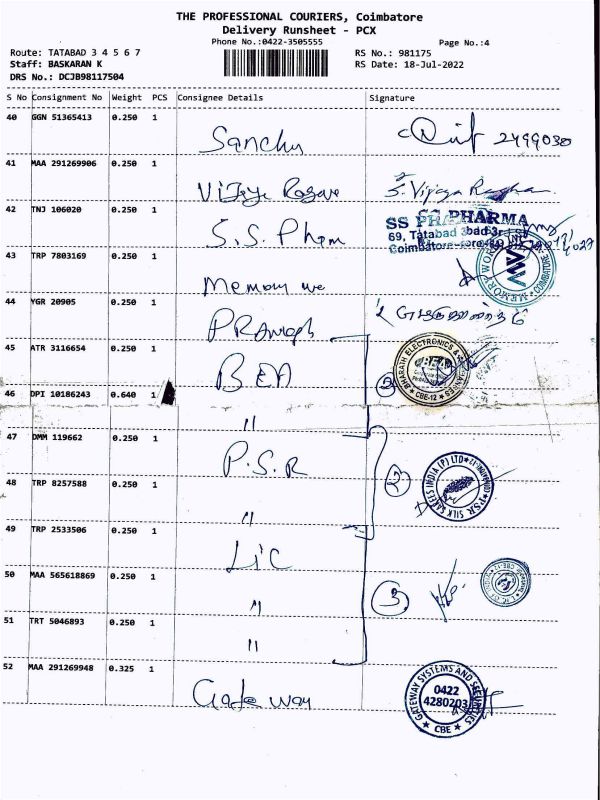 THE PROFESSIONAL COURIERS, Coimbatore
Delivery Runsheet - PCX
Phone No.:0422-3505555
Page No.:4
Route: TATABAD 3 4 5 6 7
RS No.: 981175
Staff: BASKARAN K
RS Date: 18-Jul-2022
DRS No.: DCJB98117504
S No Consignment No Weight PCS Consignee Details Signature
40 GGN 51365413 0.250 1
Sanchu 2499030
41 MAA 291269906 0.250 1
Vijaya S. Vijaya
42 TNJ 106020 0.250 1
S.S. Pham
SS PHARMA
69, Tatabad
Coimbatore
43 TRP 7803169 0.250 1
Memory we
MEMORY COIMBATORE
44 YGR 20905 0.250 1
45 ATR 3116654 0.250 1
BEA
BHARATH ELECTRONICS &
BEA
CBE-12
46 DPI 10186243 0.640 1
"
47 DMM 119662 0.250 1
P.S.R
2
P.S.R. SILK SAREES INDIA (P) LTD
48 TRP 8257588 0.250 1
"
49 TRP 2533506 0.250 1
LIC
50 MAA 565618869 0.250 1
"
3
51 TRT 5046893 0.250 1
"
52 MAA 291269948 0.325 1
Gate way
GATEWAY SYSTEMS AND SECURITIES
0422
4280203
CBE